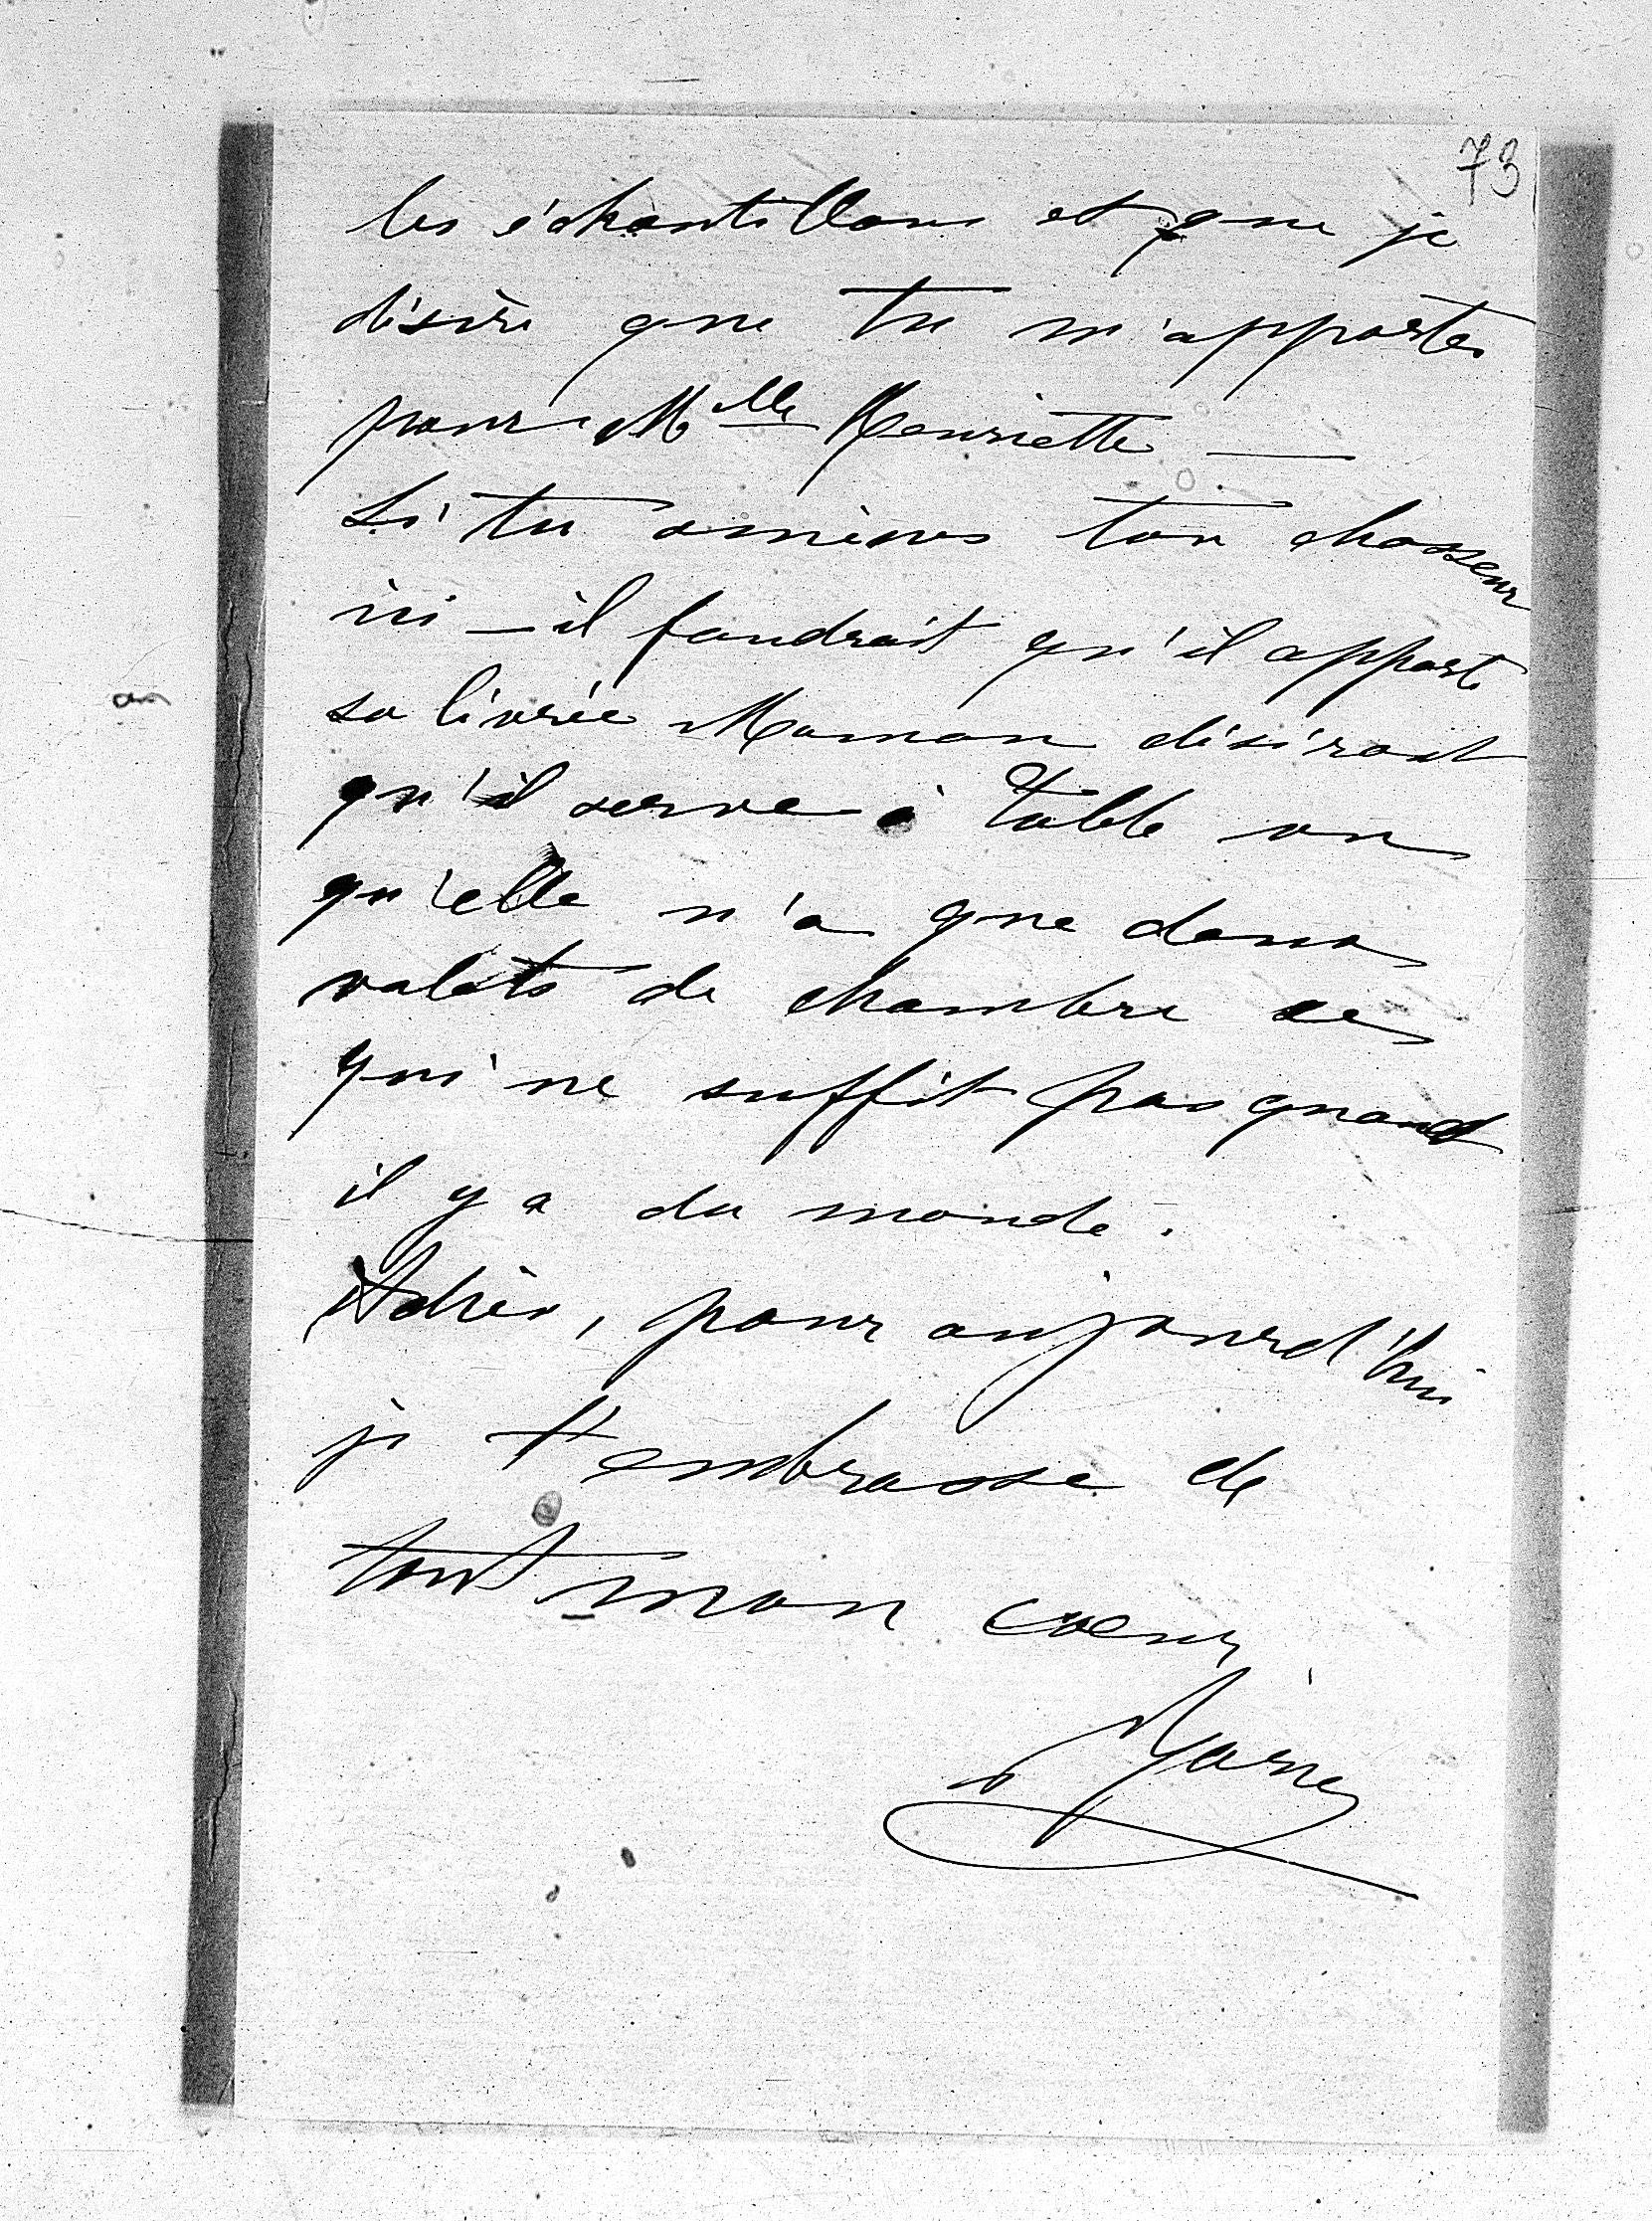 73
les échantillons et que je
désire que tu m'apportes
pour M<sup>lle</sup> Henriette —
Si tu amènes ton chasseur
ici — il faudrait qu'il apporte
sa livrée Maman désirant
qu'il serve à table vu
qu'elle n'a que deux
valets de chambre ce
qui ne suffit pas quand
il y a du monde.
Adieu, pour aujourd'hui
je t'embrasse de
tout mon coeur